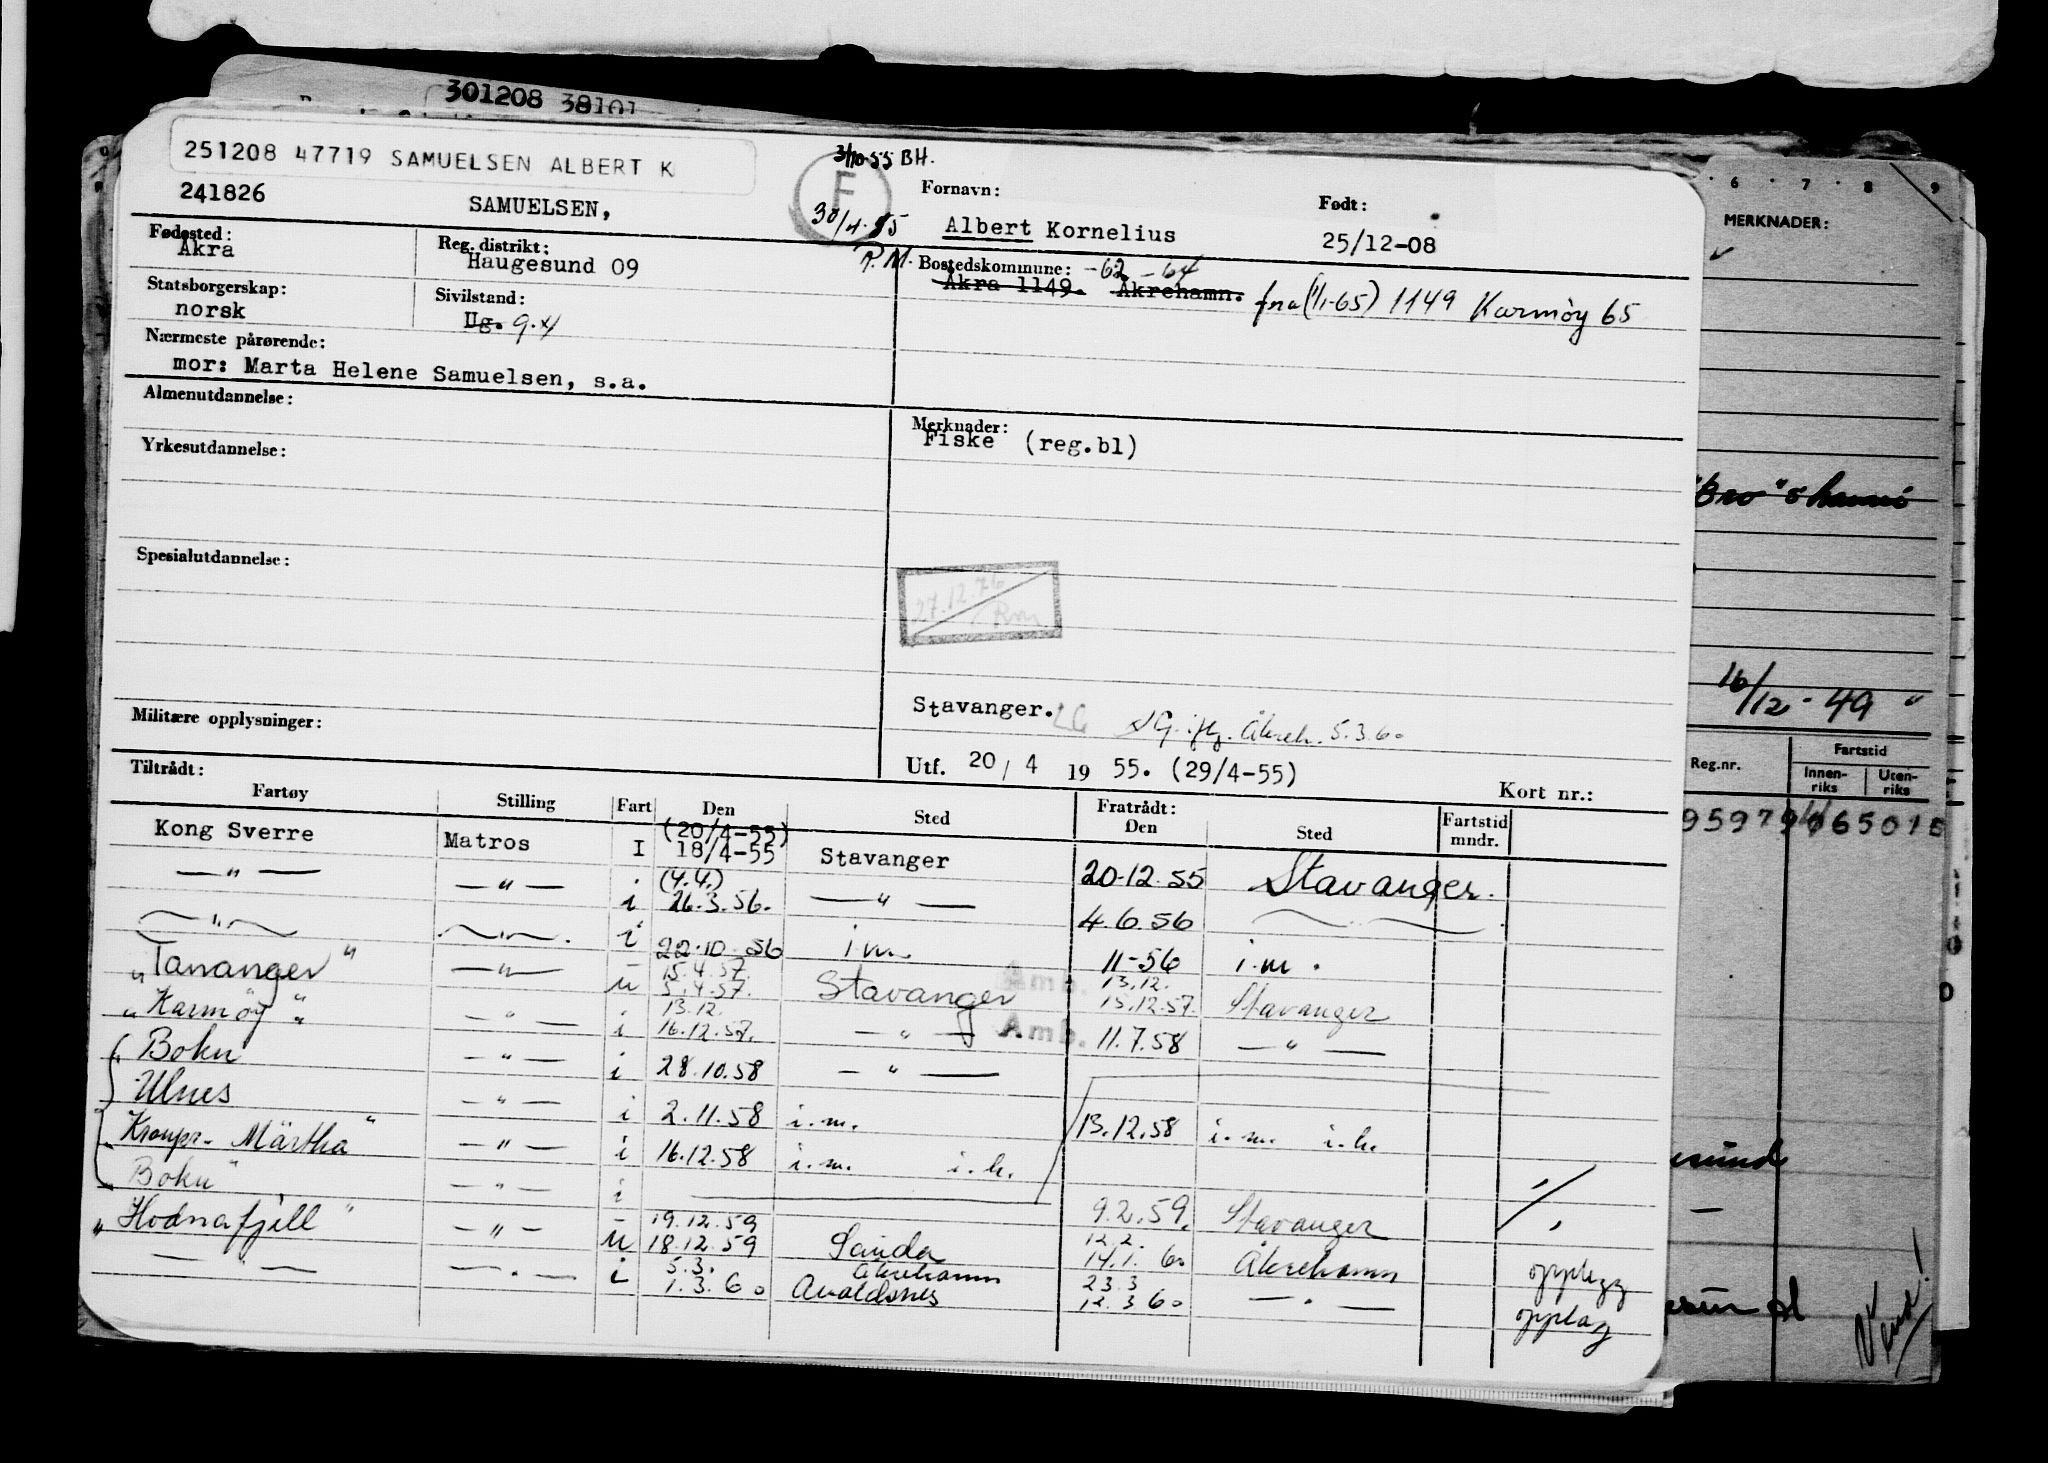 301208 38101
251208 47719 SAMUELSEN ALBERT K
3/10-55 BH.
F
241826
SAMUELSEN,
30/4-55
R.M.
Fornavn:
Albert Kornelius
Født:
25/12-08
Fødested:
Åkra
Reg. distrikt:
Haugesund 09
Bostedskommune: -62 -64
Åkra 1149. Åkrehamn. fra (1/1-65) 1149 Karmøy 65
Statsborgerskap:
norsk
Sivilstand:
Ug. g.
Nærmeste pårørende:
mor: Marta Helene Samuelsen, s.a.
Almenutdannelse:
Merknader:
Fiske (reg.bl)
Yrkesutdannelse:
Spesialutdannelse:
27.12.76
Militære opplysninger:
Stavanger.
Åkreh. 5.3.60
Utf. 20/4 1955. (29/4-55)
Kort nr.:
Tiltrådt:
Fratrådt:
Fartøy Stilling Fart Den Sted Den Sted Fartstid mndr.
(20/4-55)
Kong Sverre Matros I 18/4-55 Stavanger 20-12.55 Stavanger.
(4.4.)
— " — — " — i 26.3.56. — " — 4.6.56
— " — i 22.10.56 i.m. 11-56 i.m.
15.4.57. 13.12.
"Tananger" — " — u 5.4.57. Stavanger Amb. 15.12.57. Stavanger
13.12.
"Karmøy" — " — i 16.12.57. — " — Amb. 11.7.58 — " —
Bokn — " — i 28.10.58 — " —
Ulnes — " — i 2.11.58 i.m. 13.12.58 i.m. i.h.
Kronpr. Märtha" — " — i 16.12.58 i.m. i.h.
Bokn" — " — i 9.2.59. Stavanger
19.12.59 12.2.
"Hodnafjell" — " — u 18.12.59 Sauda 14.1.60 Åkrehamn opplegg
5.3. Åkrehamn 23.3
— " — — " — i 1.3.60 Avaldsnes 12.3.60 — " — opplag
6 7 8 9
MERKNADER:
"Bro"
16/12-49 "
Reg.nr.
Fartstid
Innen-riks
Uten-riks